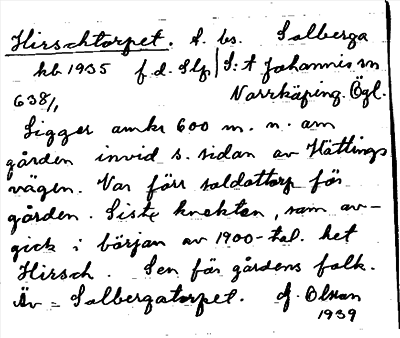 Hirschtorpet. A. bs. Solberga
hb 1935 f.d. Slp S:t Johannis sn
638/1 Norrköping. Ögl.
Ligger omkr 600 m. n. om
gården invid s. sidan av Kättings
vägen. Var förr soldattorp för
gården. Siste knekten, som av-
gick i början av 1900-tal. het
Hirsch. Sen för gårdens folk.
Äv = Solbergatorpet. Olsson
1939